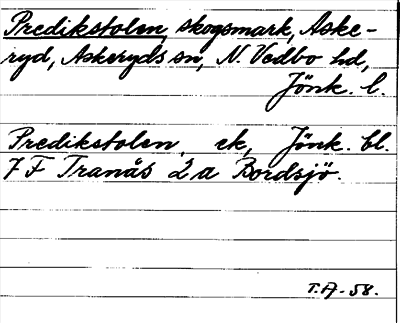 Predikstolen, skogsmark, Aske-
ryd, Askeryds sn, N. Vedbo hd,
Jönk. l.
Predikstolen, ek, Jönk. bl.
7 F Tranås 2 a Bordsjö.
T.A-58.